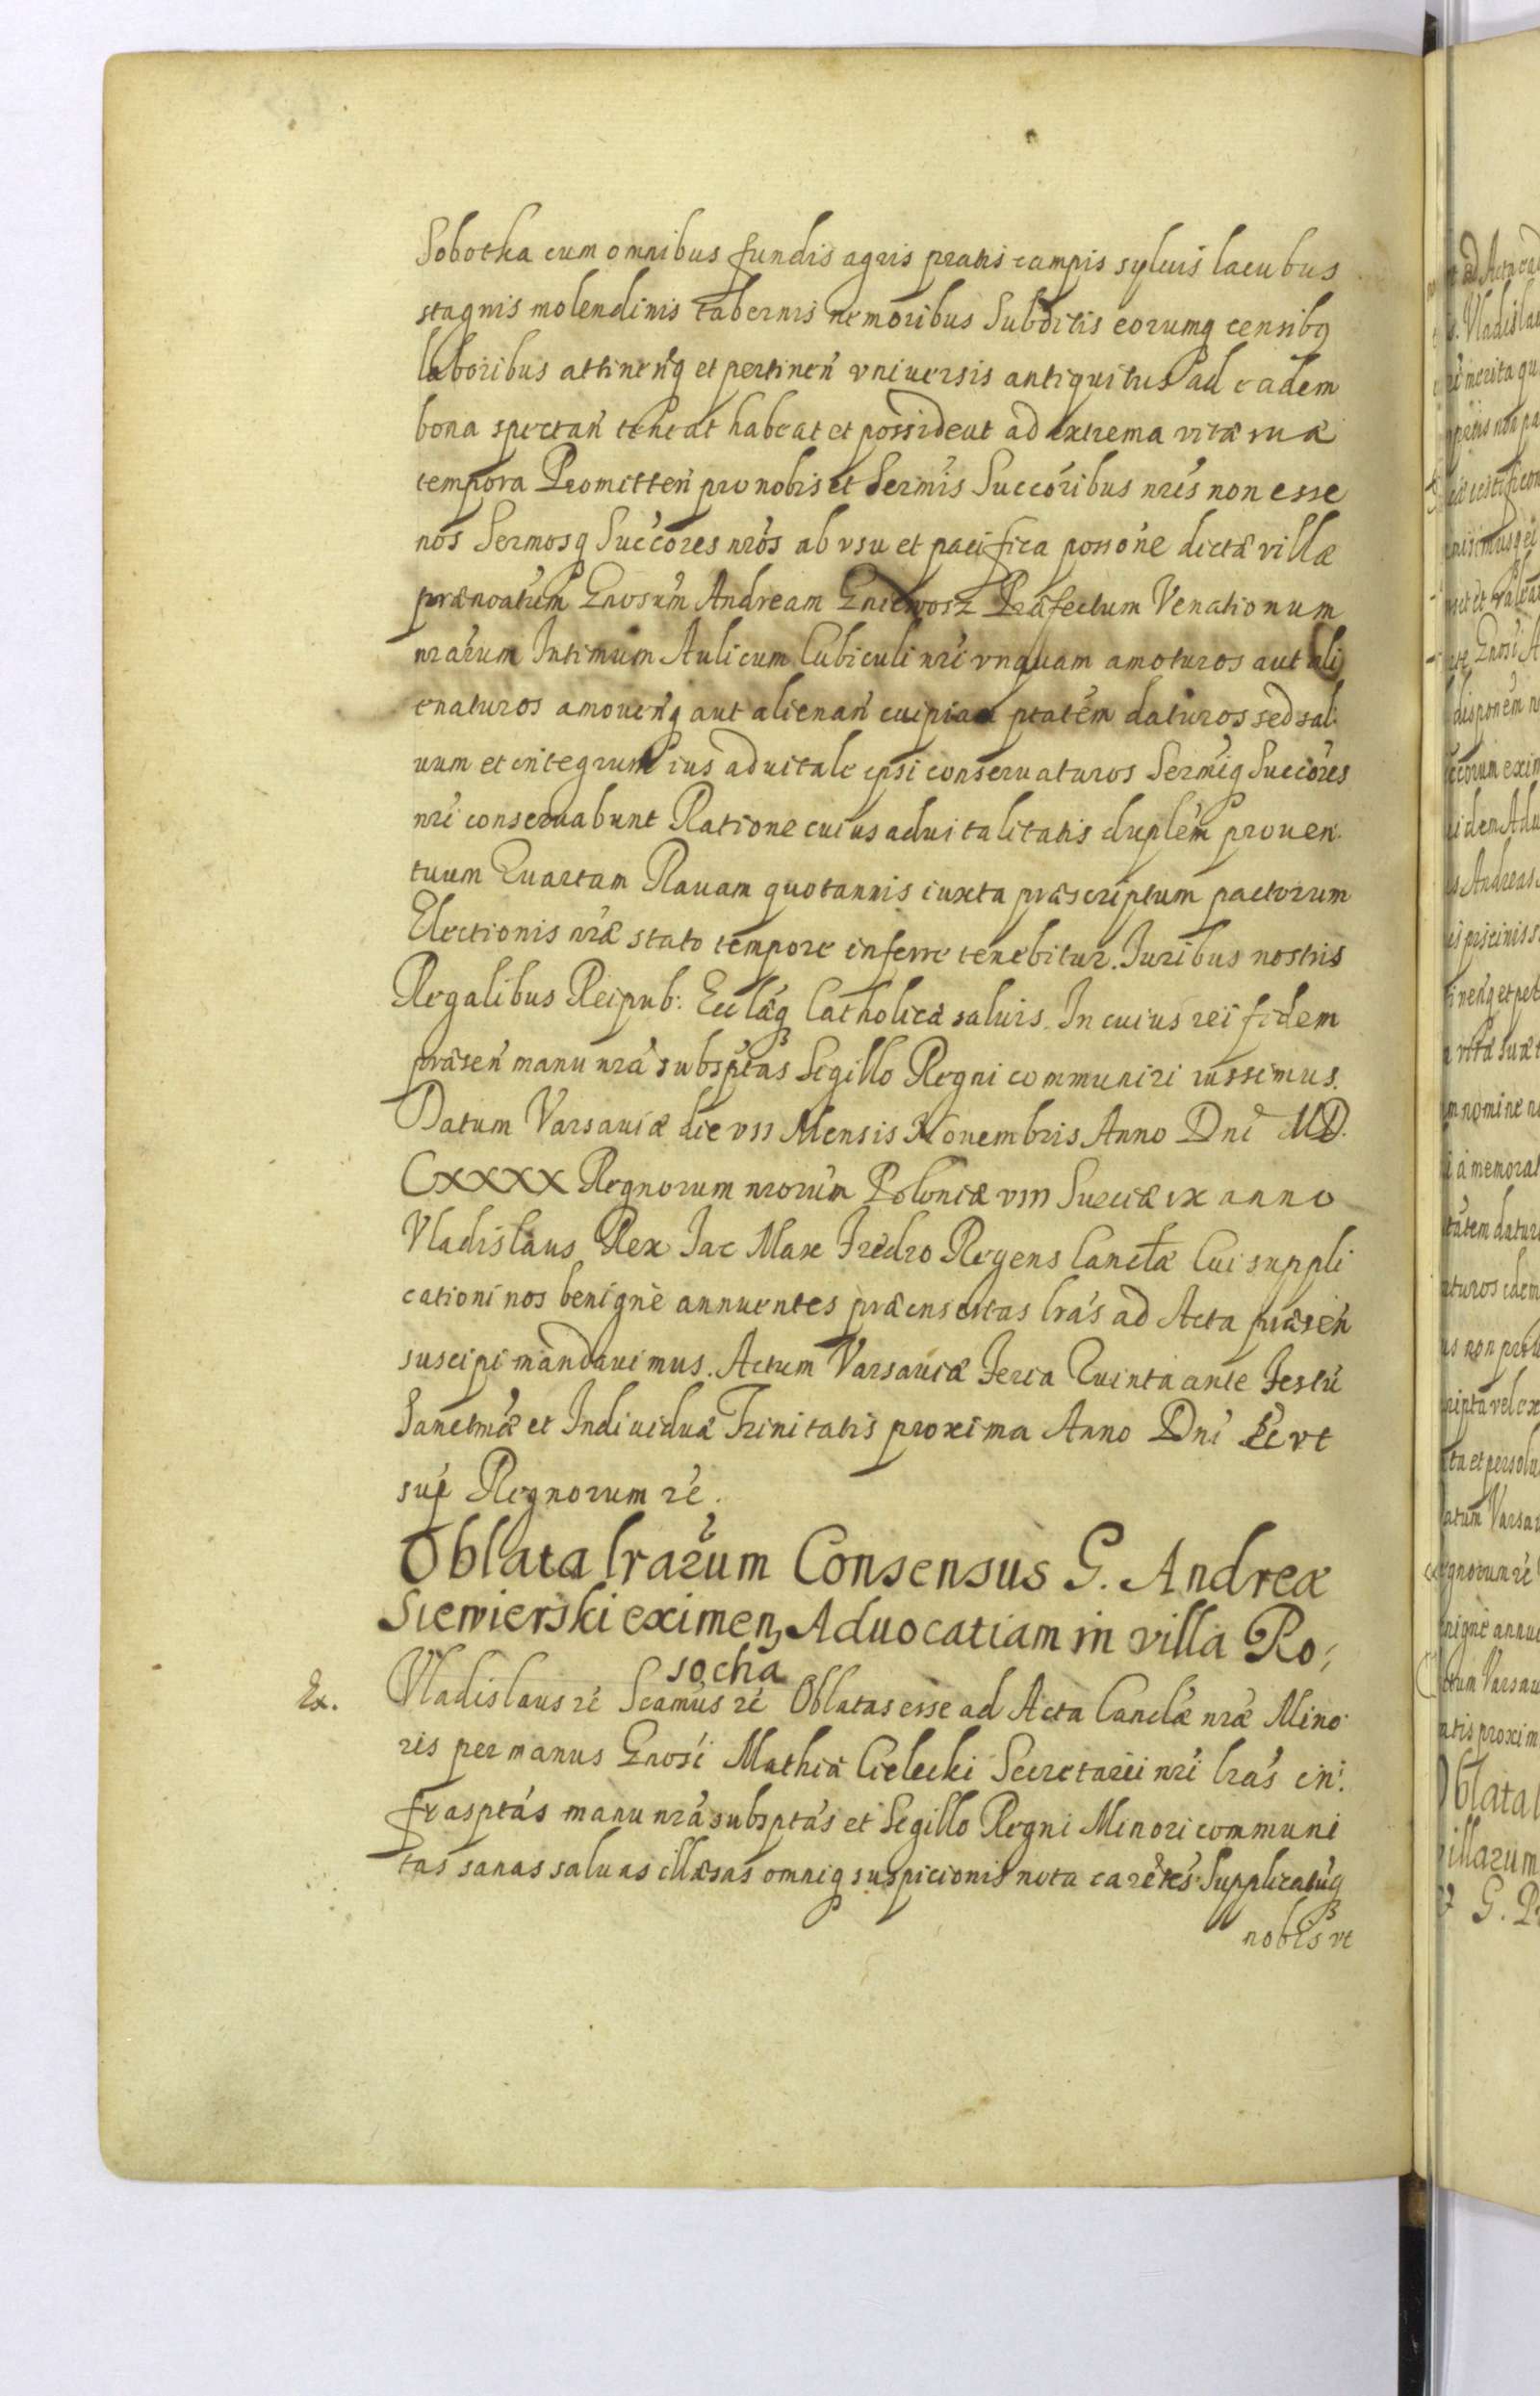 Sobotka cum omnibus fundis agris pratis campis syluis lacubus
stagnis molendinis tabernis nemoribus Subditis eorumq censibq
laboribus attineńq et pertineń vniuersis antiquitus ad eadem
bona spectań teneat habeat et possideat ad extrema vitæ suæ
tempora Promitteń pro nobis et Sermis Succoribus nris non esse
nos Sermosq Succores nros ab vsu et pacifica possone dictæ villæ
prænoatum Gnosum Andream Gniewosz Præfectum Venationum
nrarum Intimum Aulicum Cubiculi nri vnquam amoturos aut ali
enaturos amoueńq aut alienań cuipiam ptatem daturos sed sal
uum et integrum ius aduitale ipsi conseruaturos Sermiq Succores
nri conseruabunt Ratione cuius aduitalitatis duplem prouen
tuum Quartam Rauam quotannis iuxta præscriptum pactorum
Electionis nræ stato tempore inferre tenebitur. Iuribus nostris
Regalibus Reipub: Eclæq Catholicæ saluis. In cuius rei fidem
præseń manu nra subsptas Sigillo Regni communiri iussimus.
Datum Varsauiæ die VII Mensis Nouembris Anno Dni MD.
CXXXX Regnorum nrorum Poloniæ VIII Sueciæ IX anno
Vladislaus Rex Iac Max Fredro Regens Canctæ Cui suppli
cationi nos benignè annuentes præinsertas lras ad Acta præseń
suscipi mandauimus. Actum Varsauiæ Feria Quinta ante Festū
Sanctmæ et Indiuiduæ Trinitatis proxima Anno Dni &c vt
sup Regnorum rē.
Oblata lrarum Consensus G. Andreæ
Siewierski eximen, Aduocatiam in villa Ro:
socha
Ex. Vladislaus rē Scamus rē Oblatas esse ad Acta Canclæ nræ Mino
ris per manus Gnosi Mathiæ Cielecki Secretarii nri lras in:
frasptas manu nra subsptas et Sigillo Regni Minori communi
tas sanas saluas illæsas omniq suspicionis nota carētes Supplicatūq
nobis vt